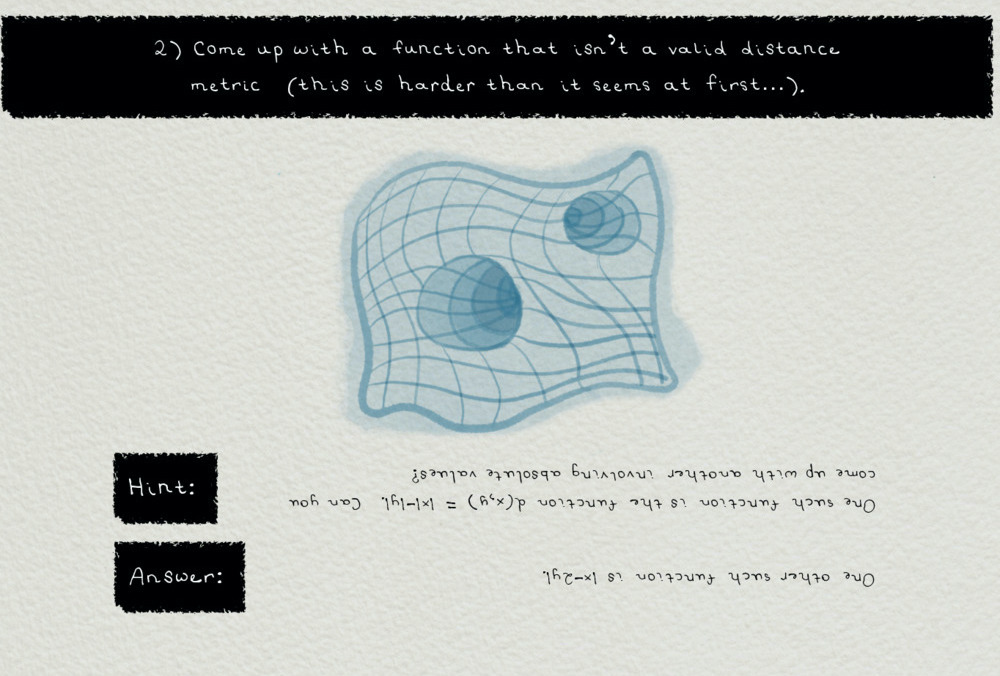 2) Come up with a function that isn't a valid distance
metric (this is harder than it seems at first...).
Hint:
One such function is the function d(x,y) = |x|-|y|. Can you
come up with another involving absolute values?
Answer:
One other such function is |x-2y|.